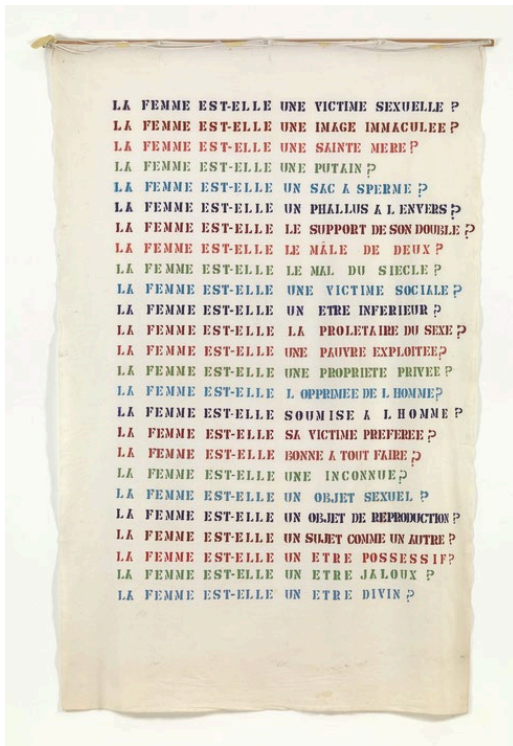 LA FEMME EST-ELLE UNE VICTIME SEXUELLE ?
LA FEMME EST-ELLE UNE IMAGE IMMACULEE ?
LA FEMME EST-ELLE UNE SAINTE MERE ?
LA FEMME EST-ELLE UNE PUTAIN ?
LA FEMME EST-ELLE UN SAC A SPERME ?
LA FEMME EST-ELLE UN PHALLUS A L ENVERS ?
LA FEMME EST-ELLE LE SUPPORT DE SON DOUBLE ?
LA FEMME EST-ELLE LE MÂLE DE DEUX ?
LA FEMME EST-ELLE LE MAL DU SIECLE ?
LA FEMME EST-ELLE UNE VICTIME SOCIALE ?
LA FEMME EST-ELLE UN ETRE INFERIEUR ?
LA FEMME EST-ELLE LA PROLETAIRE DU SEXE ?
LA FEMME EST-ELLE UNE PAUVRE EXPLOITEE ?
LA FEMME EST-ELLE UNE PROPRIETE PRIVEE ?
LA FEMME EST-ELLE L OPPRIMEE DE L HOMME ?
LA FEMME EST-ELLE SOUMISE A L HOMME ?
LA FEMME EST-ELLE SA VICTIME PREFEREE ?
LA FEMME EST-ELLE BONNE A TOUT FAIRE ?
LA FEMME EST-ELLE UNE INCONNUE ?
LA FEMME EST-ELLE UN OBJET SEXUEL ?
LA FEMME EST-ELLE UN OBJET DE REPRODUCTION ?
LA FEMME EST-ELLE UN SUJET COMME UN AUTRE ?
LA FEMME EST-ELLE UN ETRE POSSESSIF ?
LA FEMME EST-ELLE UN ETRE JALOUX ?
LA FEMME EST-ELLE UN ETRE DIVIN ?